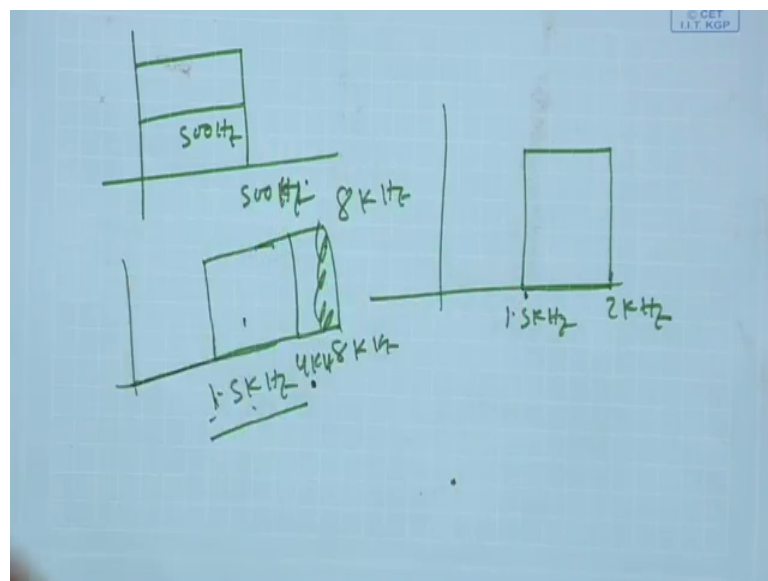 © CET
I.I.T. KGP
500Hz
500Hz
8KHz
1.5KHz
2KHz
1.5KHz 4KH 8KHz